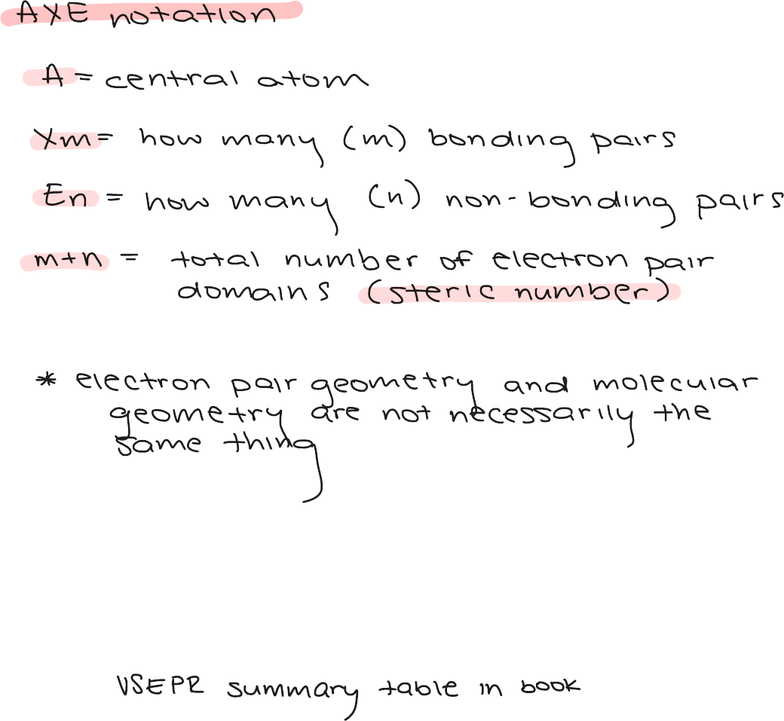 AXE notation
A = central atom
Xm = how many (m) bonding pairs
En = how many (n) non-bonding pairs
m+n = total number of electron pair
domains (steric number)
* electron pair geometry and molecular
geometry are not necessarily the
same thing
VSEPR summary table in book